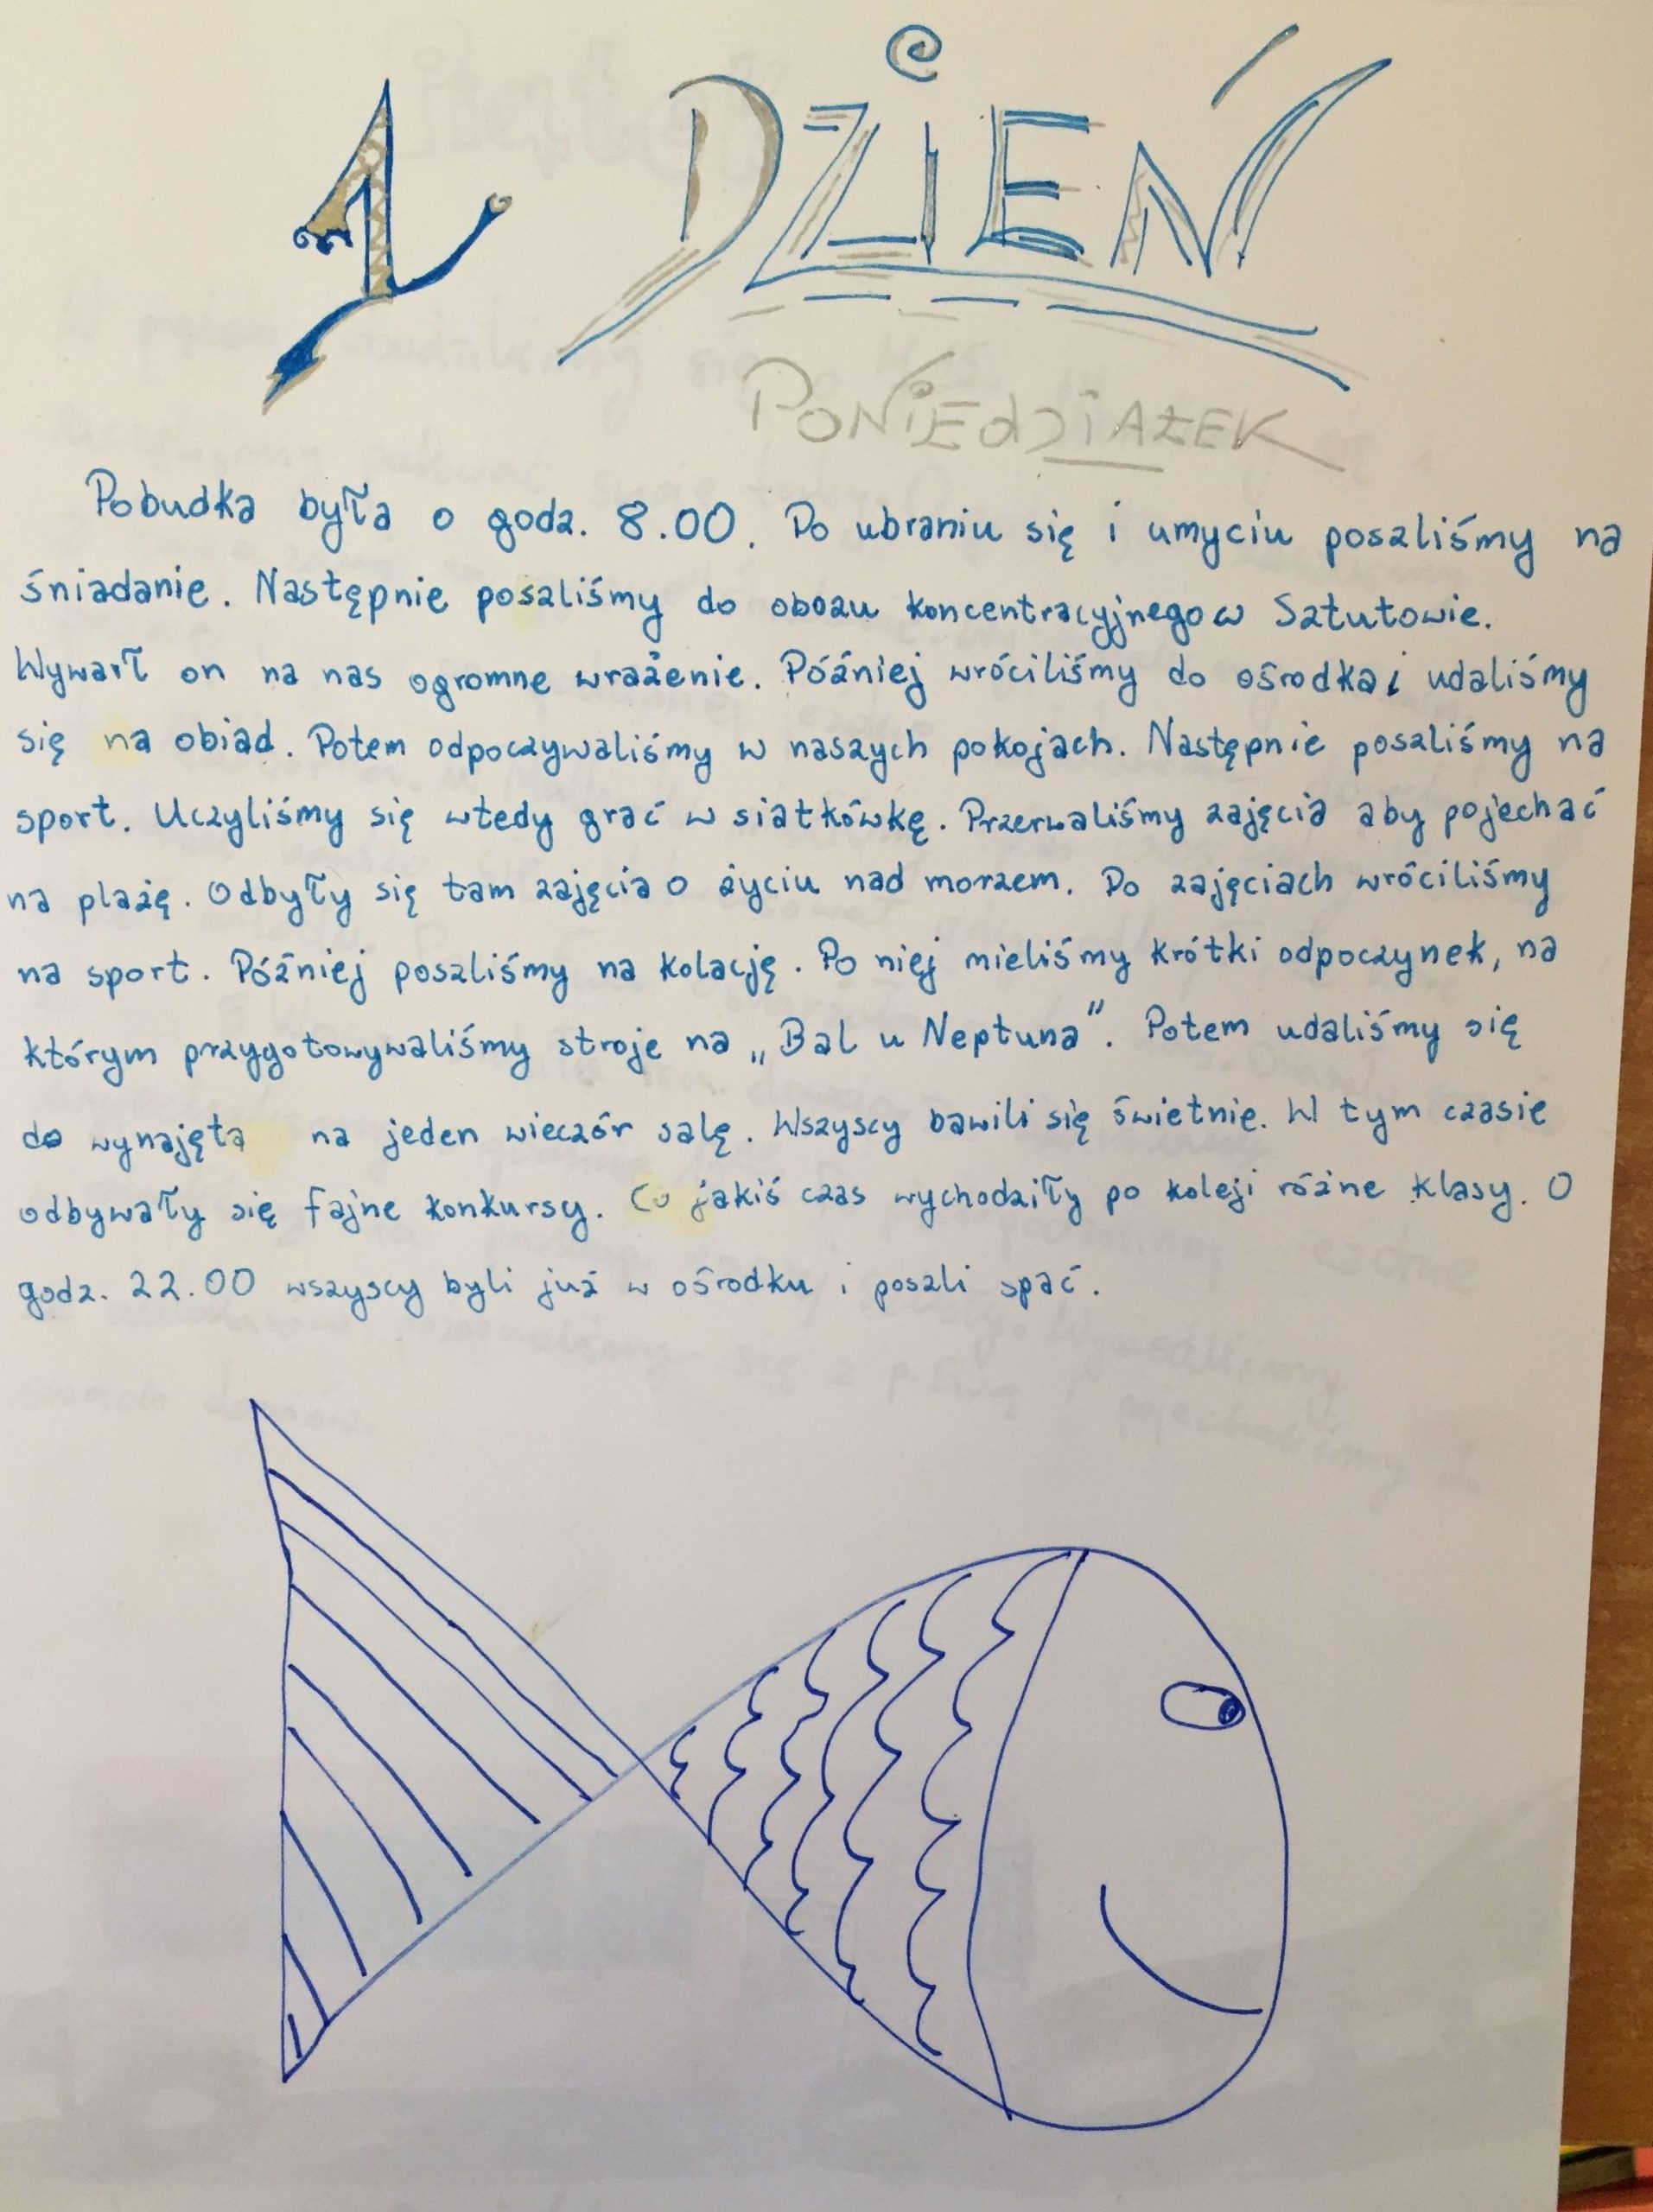 1 DZIEŃ
PONIEDZIAŁEK
Pobudka była o godz. 8.00. Po ubraniu się i umyciu poszliśmy na
śniadanie. Następnie poszliśmy do obozu koncentracyjnego w Sztutowie.
Wywarł on na nas ogromne wrażenie. Później wróciliśmy do ośrodka i udaliśmy
się na obiad. Potem odpoczywaliśmy w naszych pokojach. Następnie poszliśmy na
sport. Uczyliśmy się wtedy grać w siatkówkę. Przerwaliśmy zajęcia aby pojechać
na plażę. Odbyły się tam zajęcia o życiu nad morzem. Po zajęciach wróciliśmy
na sport. Później poszliśmy na kolację. Po niej mieliśmy krótki odpoczynek, na
którym przygotowywaliśmy stroje na „Bal u Neptuna”. Potem udaliśmy się
do wynajęta na jeden wieczór salę. Wszyscy bawili się świetnie. W tym czasie
odbywały się fajne konkursy. Co jakiś czas wychodziły po koleji różne klasy. O
godz. 22.00 wszyscy byli już w ośrodku i poszli spać.